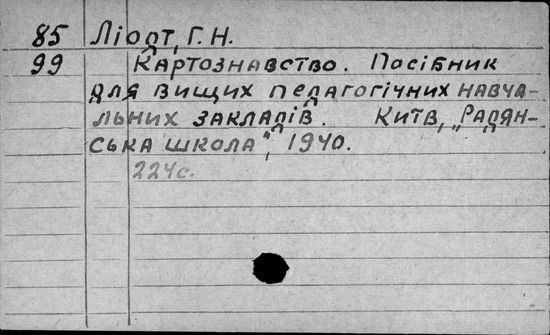 85 Ліодт, Г. Н.
99 Картознавство. Посібник
для вищих педагогічних навча-
льних закладів. Київ, „Радян-
ська школа", 1940.
224с.